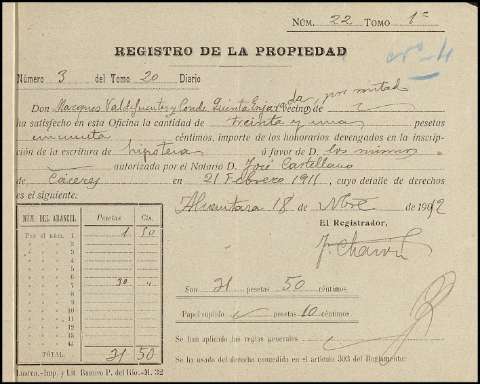 NÚM. 22 TOMO 1º
REGISTRO DE LA PROPIEDAD
Nº 4
Número 3 del Tomo 20 Diario
Don Marques Valdefuentes y Conde Quinta Enjarada, por mitad
vecino de
ha satisfecho en esta Oficina la cantidad de treinta y una pesetas
cincuenta céntimos, importe de los honorarios devengados en la inscrip-
ción de la escritura de hipoteca á favor de D. los mismos
autorizado por el Notario D. José Castellano
de Cáceres en 21 Febrero 1911, cuyo detalle de derechos
es el siguiente.
Alcántara 18 de Nbre de 1912
El Registrador,
NÚM. DEL ARANCEL Pesetas Cts.
Por el núm. 1 1 50
2
3
4
5
6
7 30 "
TOTAL 31 50
Son 31 pesetas 50 céntimos
Papel suplido pesetas 10 céntimos
Se han aplicado las reglas generales
Se ha usado del derecho concedido en el artículo 303 del Reglamento:
Luarca.-Imp. y Lit. Ramiro P. del Río.-H. 32